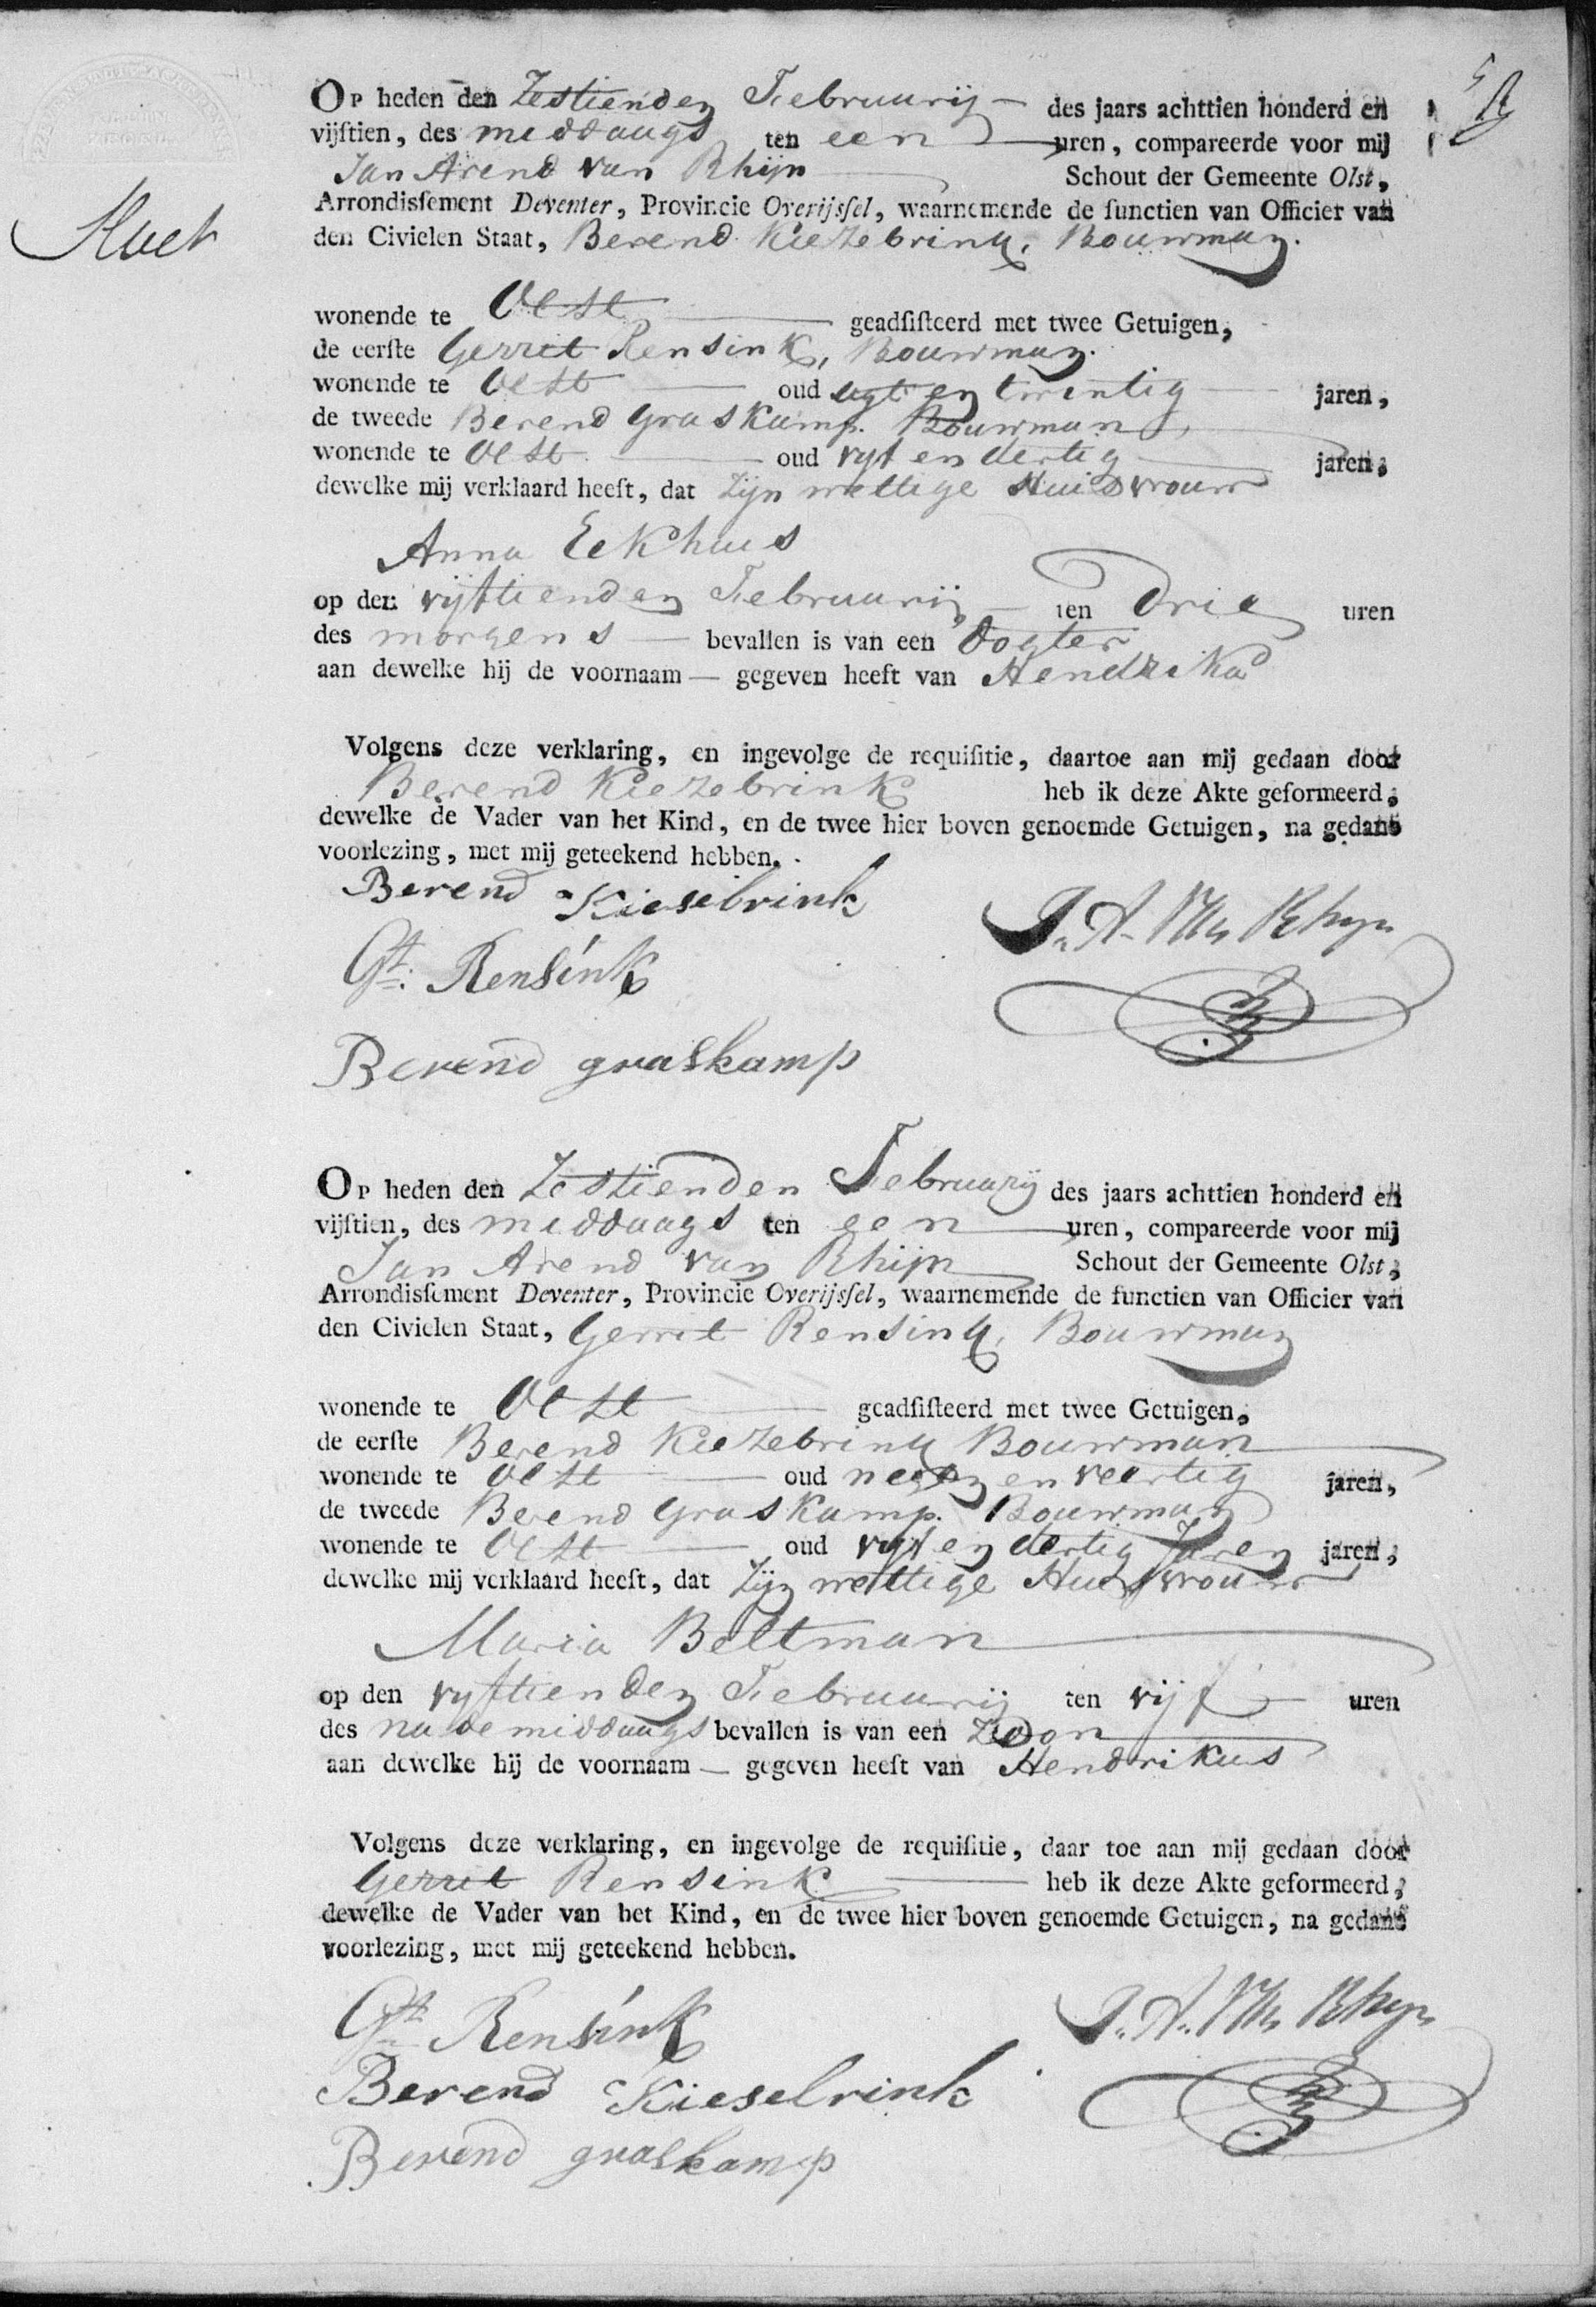 Op heden den Zestienden Februarij des jaars achttien honderd en
vijftien, des middaags ten een uren, compareerde voor mij
Jan Arend van Rhijn Schout der Gemeente Olst,
Arrondissement Deventer, Provincie Overijssel, waarnemende de functien van Officier van
den Civielen Staat, Berend Kiezebrink, Bouwman.
wonende te Olst geadsisteerd met twee Getuigen,
de eerste Gerret Rensink, Bouwman.
wonende te Olst oud agt en twintig jaren,
de tweede Berend Graskamp. Bouwman,
wonende te Olst oud vyf en dertig jaren,
dewelke mij verklaard heeft, dat Zyn wettige Huisvrouw
Anna Eekhuis
op den vijftienden Februarij ten Drie uren
des morgens bevallen is van een Dogter
aan dewelke hij de voornaam — gegeven heeft van Hendrika
Volgens deze verklaring, en ingevolge de requisitie, daartoe aan mij gedaan door
Berend Kiezebrink heb ik deze Akte geformeerd,
dewelke de Vader van het Kind, en de twee hier boven genoemde Getuigen, na gedane
voorlezing, met mij geteekend hebben.
Berend Kieselbrink
J. A. Van Rhyn
Gt. Rensink
Berend graskamp
Op heden den Zestienden Februarij des jaars achttien honderd en
vijftien, des middaags ten een uren, compareerde voor mij
Jan Arend van Rhijn Schout der Gemeente Olst,
Arrondissement Deventer, Provincie Overijssel, waarnemende de functien van Officier van
den Civielen Staat, Gerret Rensink, Bouwman
wonende te Olst geadsisteerd met twee Getuigen,
de eerste Berend Kiezebrink Bouwman
wonende te Olst oud negen en veertig jaren,
de tweede Berend Graskamp. Bouwman
wonende te Olst oud vyf en dertig Jaren jaren,
dewelke mij verklaard heeft, dat Zyn wettige Huisvrouw
Maria Beltman
op den vyftienden Februarij ten vijf uren
des nademiddaags bevallen is van een Zoon
aan dewelke hij de voornaam — gegeven heeft van Hendrikus
Volgens deze verklaring, en ingevolge de requisitie, daar toe aan mij gedaan door
Gerret Rensink heb ik deze Akte geformeerd,
dewelke de Vader van het Kind, en de twee hier boven genoemde Getuigen, na gedane
voorlezing, met mij geteekend hebben.
Gt Rensink
J. A. Van Rhyn
Berend Kieselrink
Berend graskamp